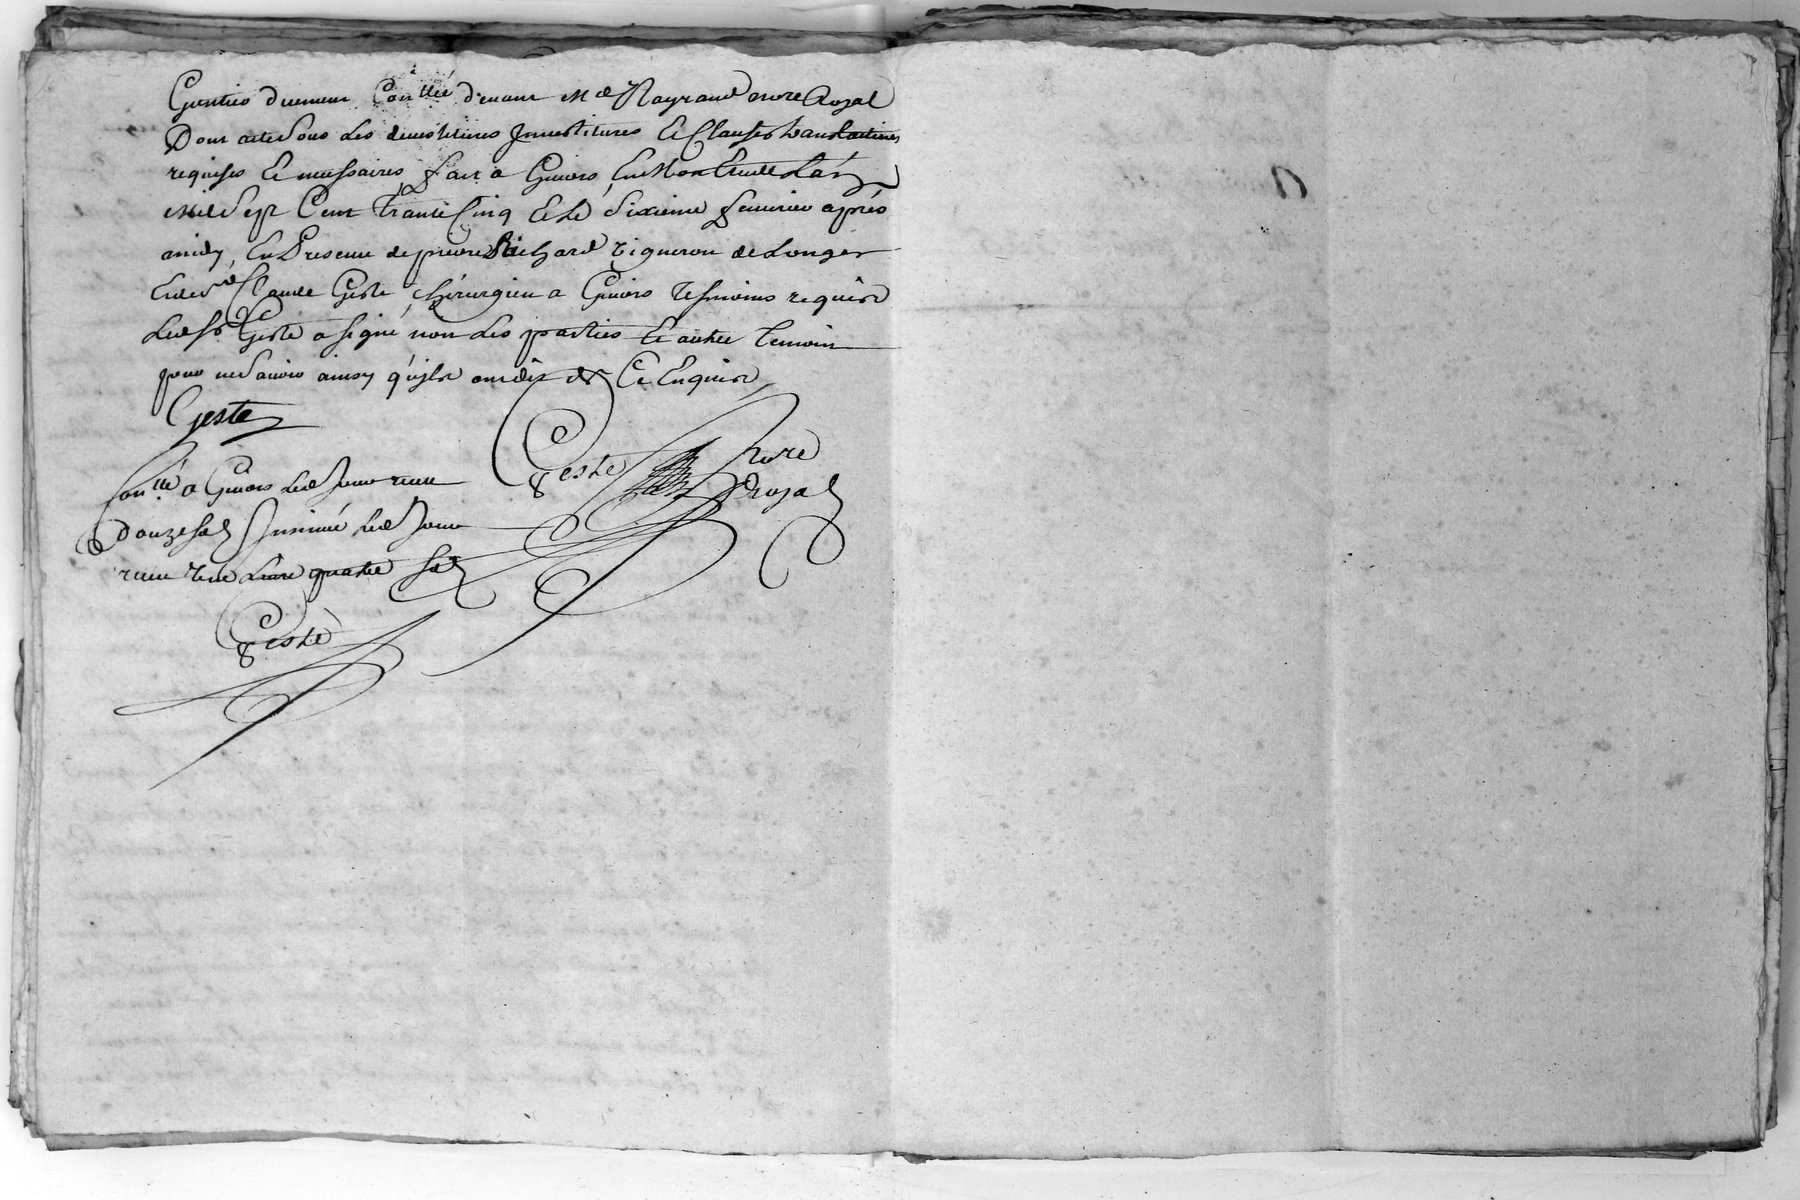 duement Con.llé devant M.e Raynaud no.re Royal
Dont acte sous les devestitures Investitures Et Clauses translatives
requises Et necessaires fait a Givors En l'Etude l'an
Mil Sept Cent Trante Cinq Et le Sixieme fevrier après
midy, En Presence de pierre Richard vigneron de Longes
Et de s.r Claude Geste chirurgien a Givors Tesmoins requis
Led. s.r Geste a signé non les parties Et autre Temoin
pour ne Savoir ainsy qu'ils ont dit de Ce Enquis
Geste
Geste no.re Royal
Con.llé a Givors led. Jour receu
Douze sols Insinué led. Jour
receu une Livre quatre sols
Geste